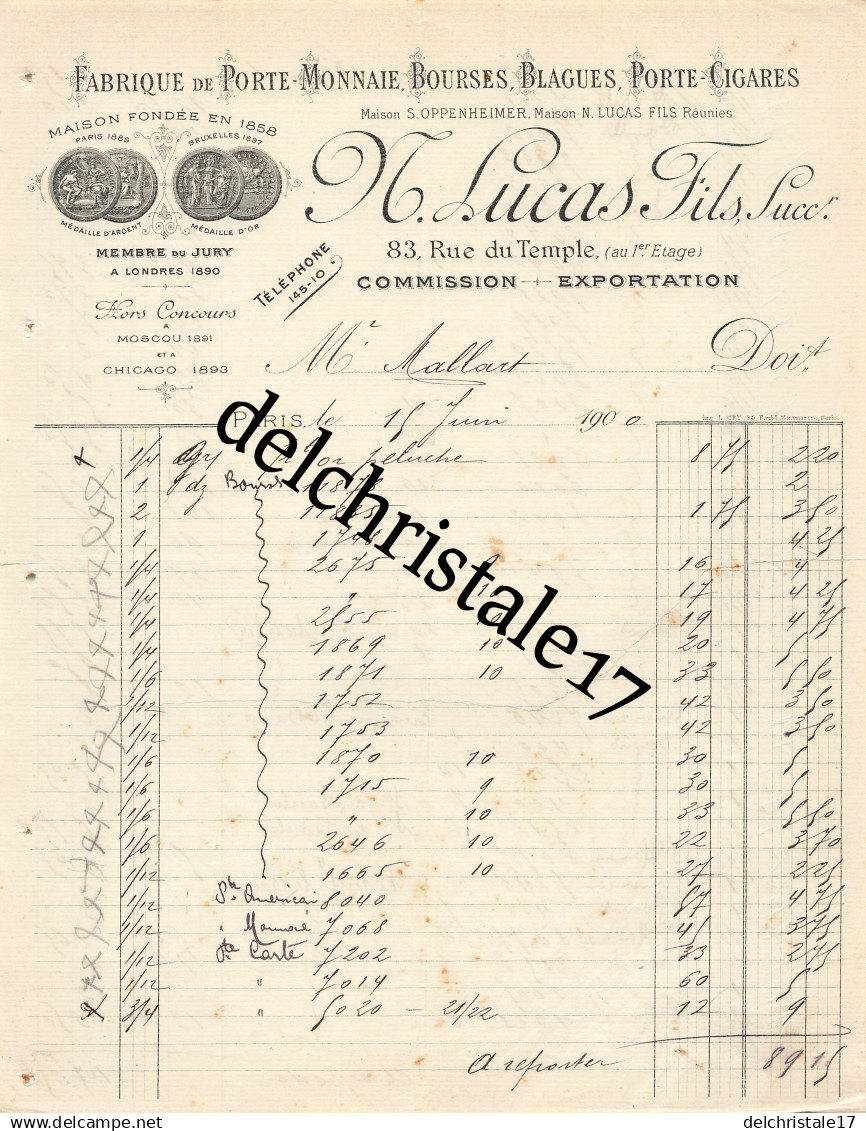 FABRIQUE DE PORTE-MONNAIE, BOURSES, BLAGUES, PORTE-CIGARES
Maison S. OPPENHEIMER, Maison N. LUCAS FILS Réunies
MAISON FONDÉE EN 1858
PARIS 1889 BRUXELLES 1897
MÉDAILLE D'ARGENT MÉDAILLE D'OR
N. Lucas Fils, Succr.
83, Rue du Temple, (au 1er Etage)
COMMISSION EXPORTATION
TÉLÉPHONE
145-10
MEMBRE DU JURY
A LONDRES 1890
Hors Concours
A
MOSCOU 1891
ET A
CHICAGO 1893
Mr Mallart Doit
PARIS, le 15 Juin 1900
Imp. L. GRY, Paris.
1/4 or peluche 8 75 2 20
1 dz Bourse 2
2 1 75 3 50
1 4 25
1/4 2675 16 4
1/4 " 10 17 4 25
1/4 2555 19 4 75
1/4 1869 10 20 5
1/6 1871 10 33 5 50
1/12 1752 42 3 50
1/12 1753 42 3 50
1/6 1870 10 30 5
1/6 1715 9 30 5
1/6 " 10 33 5 50
1/6 2646 10 22 3 70
1/12 1665 10 27 2 25
1/12 Americain 8040 57 4 75
1/12 " Monnaié 7068 45 3 75
1/12 Pte Carte 7202 33 2 75
1/12 " 7014 60 5
3/4 " 5020 - 21/22 12 9
A reporter 89 15
delchristale17
delcampe.net delchristale17